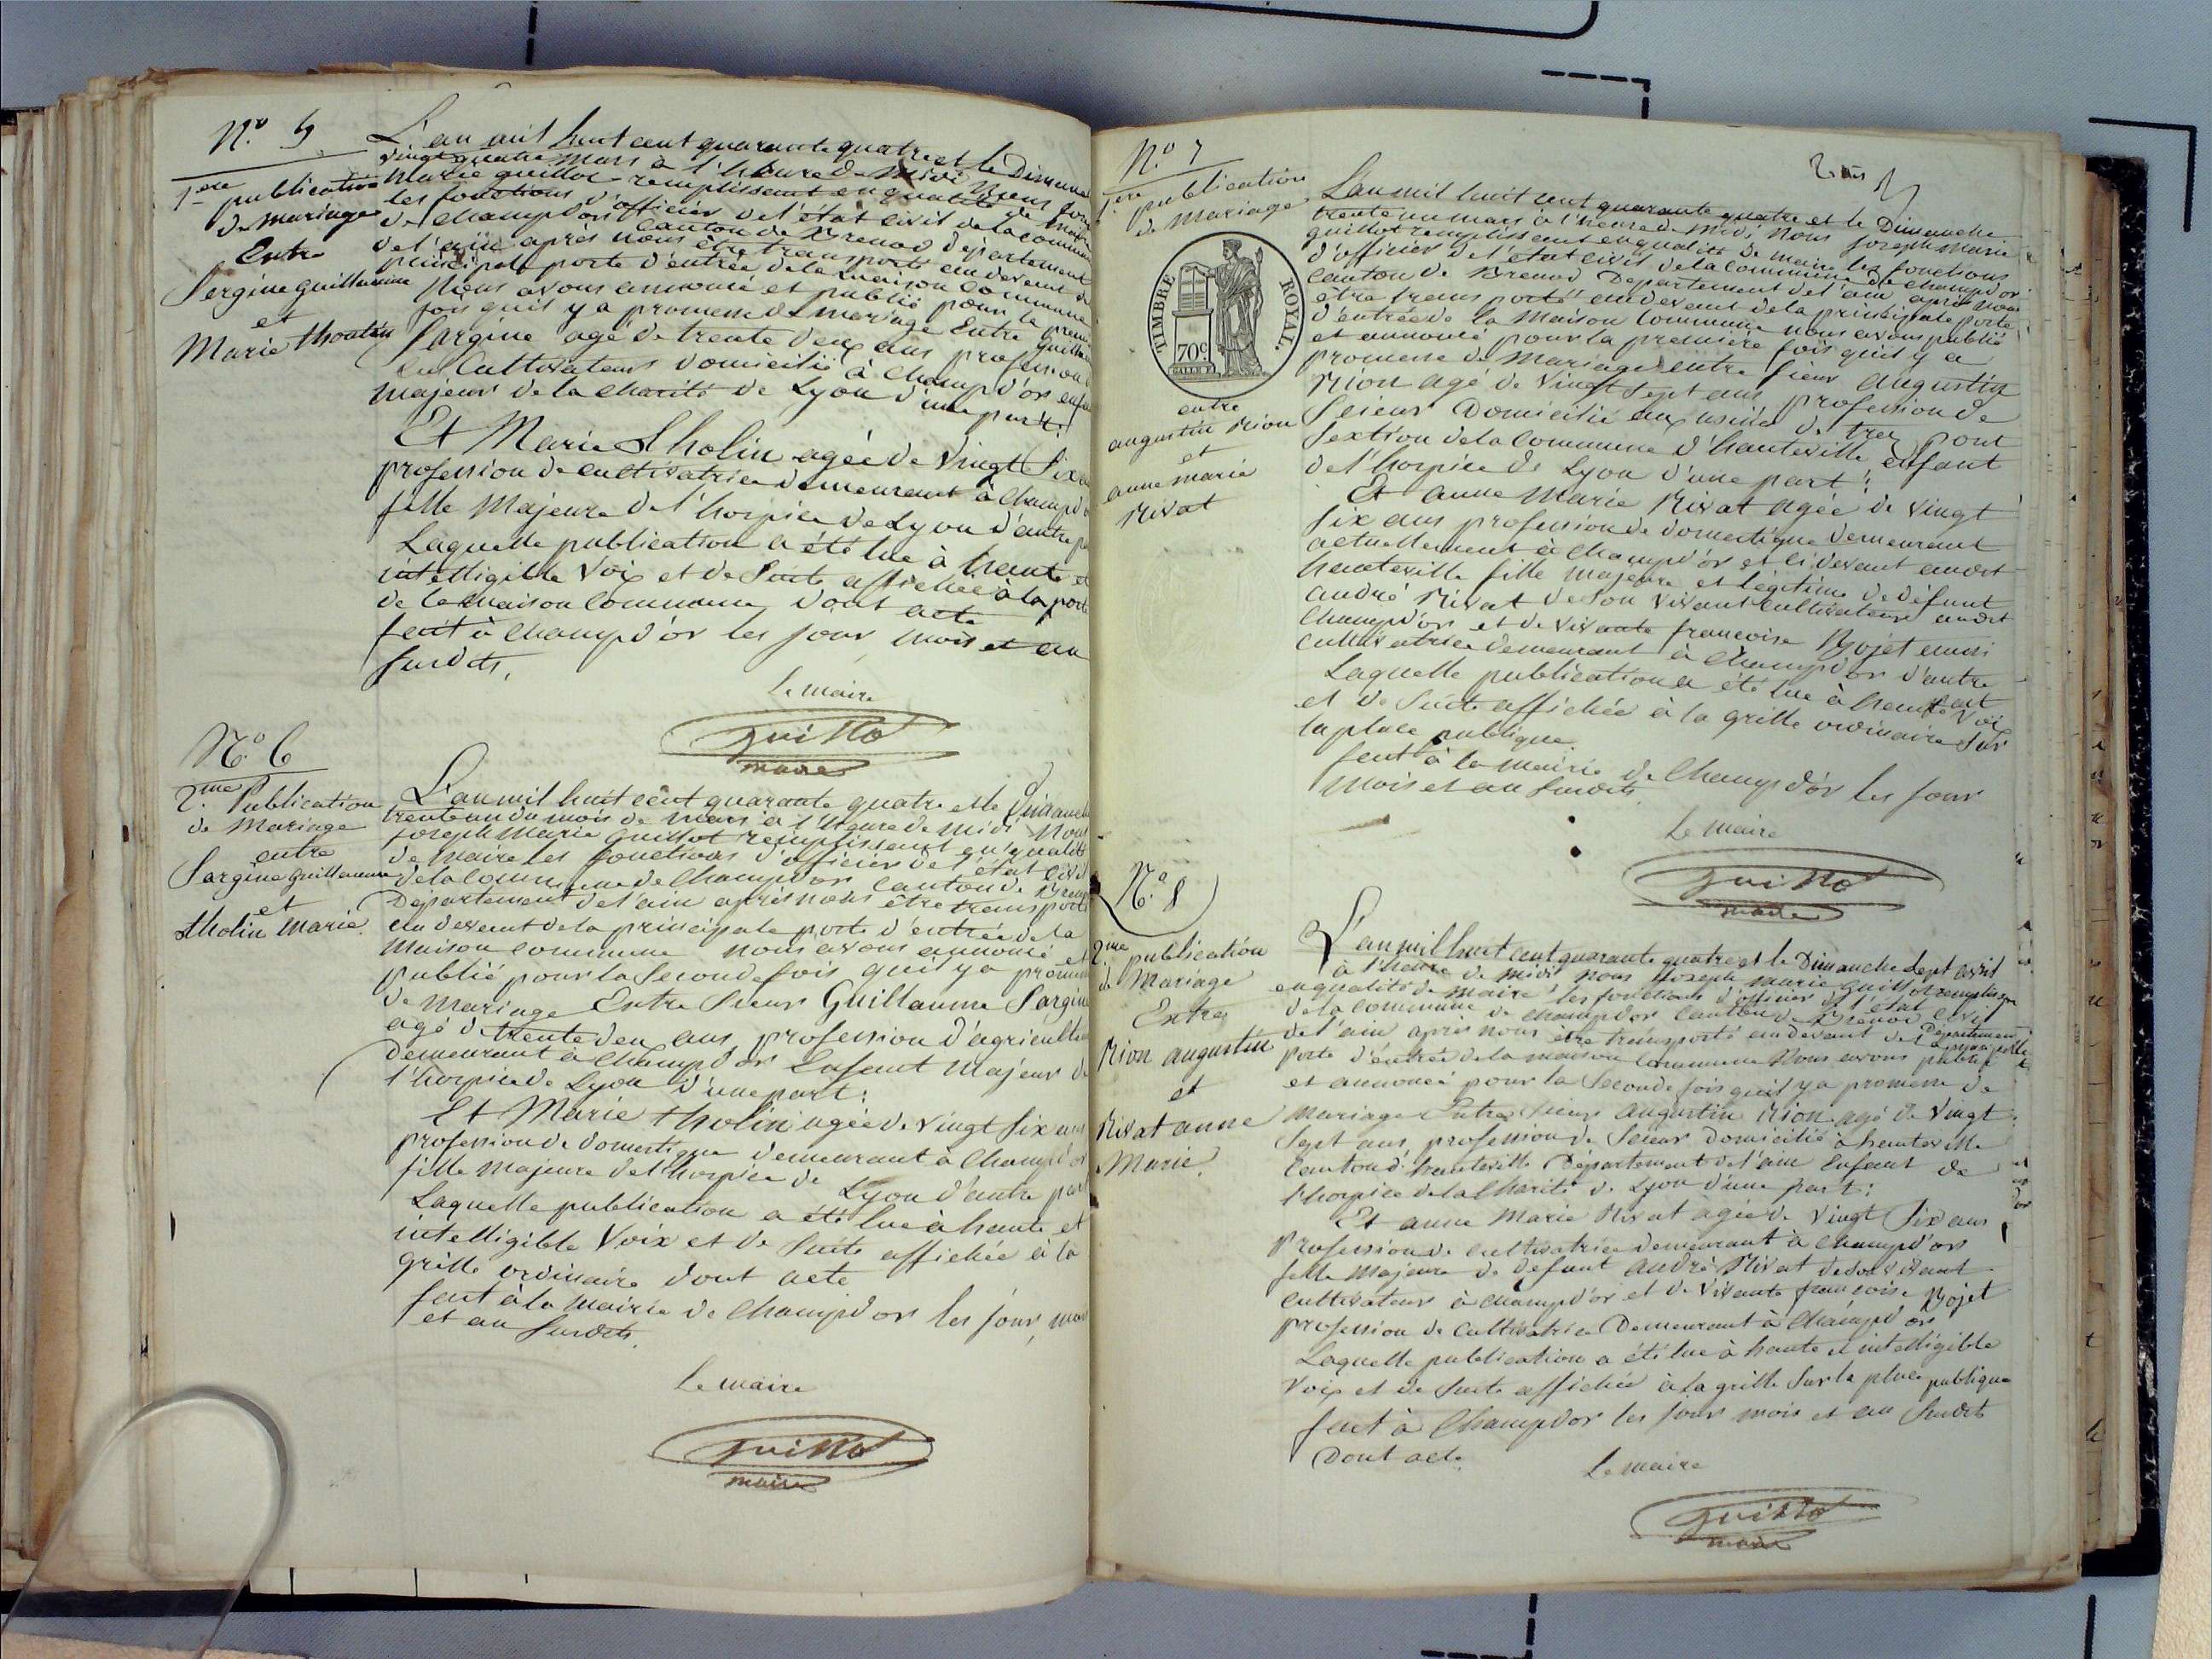 N.o 5
1ere publication
de mariage
Entre
Sergine guillaume
et
Marie tholin
L'an mil huit cent quarante quatre et le Dimanche
vingt quatre mars à l'heure de midi Nous
Marie guillot remplissant en qualité de maire
les fonctions d'officier de l'état civil de la commune
de Champd'or Canton de Brenod département
de l'ain après nous être transporté au devant de
principale porte d'entrée de la maison commune
Nous avons annoncé et publié pour la
fois qu'il y a promesse de mariage Entre
Sargine agé de trente deux ans profession
Cultivateur domicilié à Champd'or
majeur de la charité de Lyon d'une part:
Et Marie tholin agée de vingt Six
profession de cultivatrice demeurant à Champd'or
fille Majeure de l'hospice de Lyon d'autre
Laquelle publication a été lue à haute et
intelligible Voix et de Suite affichée à la porte
de la maison commune, dont acte
fait à Champd'or les jour mois et an
Susdits,
Le maire
Guillot
maire
N.o 6
2.me Publication
de Mariage
entre
Sargine Guillaume
et
tholin Marie
L'an mil huit cent quarante quatre et le Dimanche
trente un du mois de mars à l'heure de midi Nous
joseph Marie Guillot remplissant en qualité
de maire les fonctions d'officier de l'état civil
de la commune de Champd'or Canton de Brenod
Département de l'ain après nous être transporté
au devant de la principale porte d'entrée de la
maison commune nous avons annoncé et
publié pour la Seconde fois qu'il y a promesse
de Mariage Entre Sieur Guillaume Sargine
agé de trente deux ans profession d'agriculteur
demeurant à Champd'or Enfant Majeur de
l'hospice de Lyon d'une part:
Et Marie tholin agée de vingt Six ans
profession de domestique demeurant à Champd'or
fille majeure de l'hospice de Lyon d'autre part
Laquelle publication a été lue à haute et
intelligible Voix et de Suite affichée à la
grille ordinaire dont acte
fait à la mairie de Champd'or les jour, mois
et an Susdits,
Le maire
Guillot
maire
N.o 7
1ere publication
de Mariage
TIMBRE ROYAL.
70c.
entre
augustin Rion
et
anne marie
Rivat
L'an mil huit cent quarante quatre et le Dimanche
trente un mars à l'heure de midi Nous joseph Marie
guillot remplissant en qualité de maire les fonctions
d'officier de l'état civil de la commune de Champd'or
Canton de Brenod Département de l'ain après nous
être transporté au devant de la principale porte
d'entrée de la Maison commune nous avons publié
et annoncé pour la première fois qu'il y a
promesse de Mariage entre Sieur augustin
Rion agé de Vingt Sept ans profession de
Scieur Domicilié aux de trez pont
Sextion de la commune d'hauteville enfant
de l'hospice de Lyon d'une part:
Et anne Marie Rivat agée de vingt
six ans profession de domestique demeurant
actuellement à Champd'or et ci devant audit
hauteville fille majeure et légitime de défunt
andré Rivat de Son Vivant Cultivateur audit
Champd'or et de vivante françoise Bojet aussi
cultivatrice demeurant à Champd'or d'autre
part
Laquelle publication a été lue à haute Voix
et de Suite affichée à la grille ordinaire Sur
la place publique
fait à la mairie de Champd'or les jour
mois et an Susdits
Le maire
Guillot
maire
N.o 8
2.me publication
de Mariage
Entre
Rion augustin
et
Rivat anne
Marie
L'an mil huit cent quarante quatre et le Dimanche Sept avril
à l'heure de midi nous joseph marie guillot remplissant
en qualité de maire les fonctions d'officier de l'état civil
de la commune de Champd'or Canton de Brenod Département
de l'ain après nous être transporté au devant de la principale
porte d'entrée de la maison commune Nous avons publié
et annoncé pour la Seconde fois qu'il y a promesse de
mariage Entre Sieur augustin Rion agé de Vingt
Sept ans, profession de Scieur Domicilié à hauteville
Canton d'hauteville Département de l'ain Enfant de
l'hospice de la Charité de Lyon d'une part:
Et anne Marie Rivat agée de Vingt Six ans
Profession de cultivatrice demeurant à Champd'or
fille Majeure de défunt andré Rivat de Son vivant
cultivateur à Champd'or et de Vivante françoise Bojet
profession de Cultivatrice Demeurant à Champd'or
Laquelle publication a été lue à haute et intelligible
Voix et de Suite affichée à la grille Sur la place publique
fait à Champd'or les jour mois et an Susdits
Dont acte.
Le maire
Guillot
maire